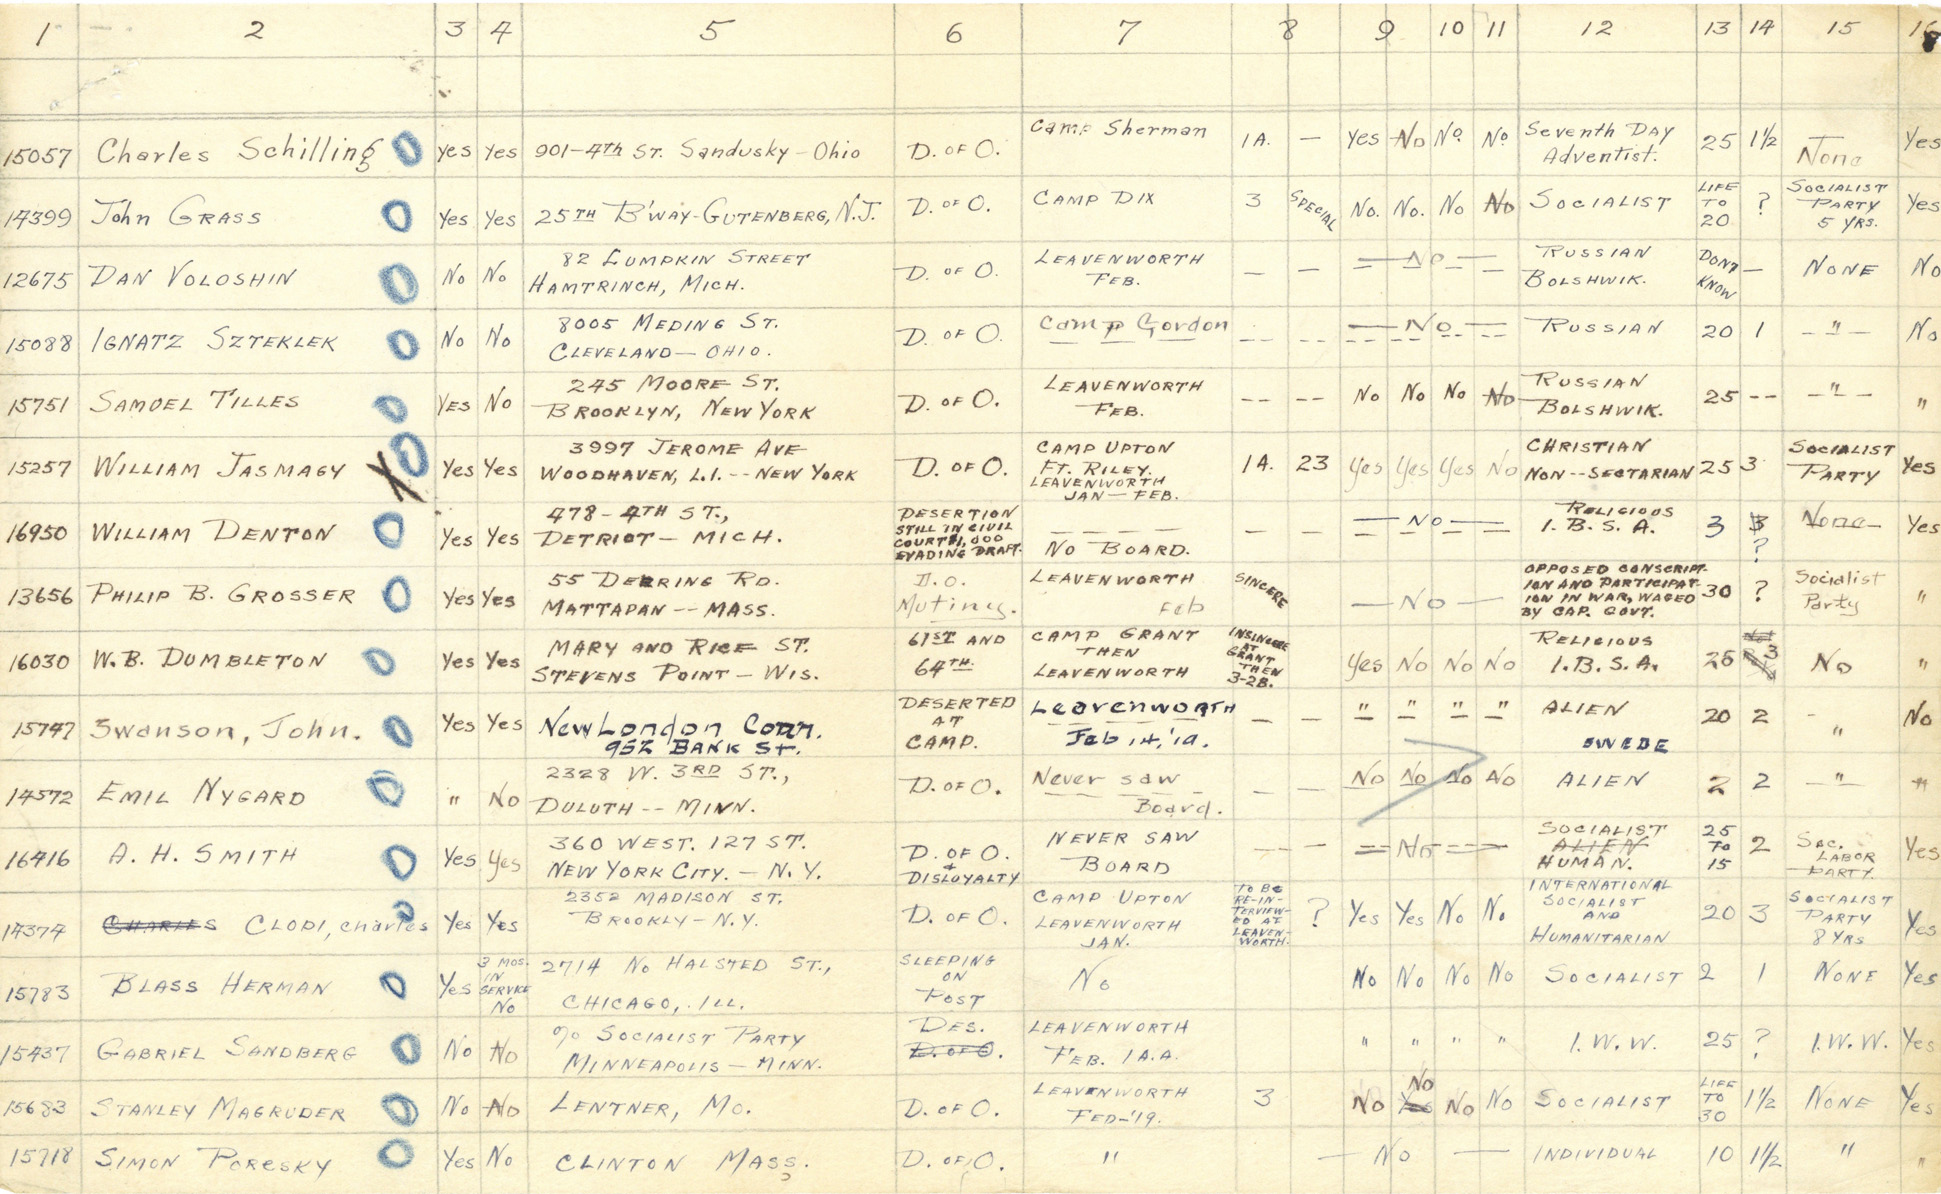 1 2 3 4 5 6 7 8 9 10 11 12 13 14 15 16
15057 Charles Schilling O Yes Yes 901-4th St. Sandusky - Ohio D. of O. Camp Sherman 1A. — Yes No No. No Seventh Day Adventist. 25 1½ None Yes
14399 John Grass O Yes Yes 25TH B'way-Gutenberg, N.J. D. of O. Camp Dix 3 Special No. No. No No Socialist Life to 20 ? Socialist Party 5 yrs. Yes
12675 Dan Voloshin O No No 82 Lumpkin Street Hamtrinch, Mich. D. of O. Leavenworth Feb. — — — No — Russian Bolshwik. Dont Know — None No
15088 Ignatz Szteklek O No No 8005 Meding St. Cleveland — Ohio. D. of O. Camp Gordon -- -- — No — Russian 20 1 — " — No
15751 Samuel Tilles O Yes No 245 Moore St. Brooklyn, New York D. of O. Leavenworth Feb. -- -- No No No No Russian Bolshwik. 25 -- — " — "
15257 William Jasmagy X O Yes Yes 3997 Jerome Ave Woodhaven, L.I. -- New York D. of O. Camp Upton Ft. Riley. Leavenworth Jan — Feb. 1A. 23 Yes Yes Yes No Christian Non--Sectarian 25 3 Socialist Party Yes
16950 William Denton O Yes Yes 478 - 4TH St., Detriot — Mich. Desertion still in civil court $1,000 evading draft. No Board. — — — No — Religious I.B.S.A. 3 ? None Yes
13656 Philip B. Grosser O Yes Yes 55 Deering Rd. Mattapan -- Mass. D.O. Mutiny. Leavenworth Feb Sincere — No — Opposed conscription and participation in war, waged by cap. govt. 30 ? Socialist Party "
16030 W.B. Dumbleton O Yes Yes Mary and Rice St. Stevens Point — Wis. 61ST and 64TH. Camp Grant then Leavenworth Insincere at Grant then 3-2B. Yes No No No Religious I.B.S.A. 25 3 No "
15747 Swanson, John. O Yes Yes New London Conn. 952 Bank St. Deserted at camp. Leavenworth Feb 14,'19. — — " " " " Alien Swede 20 2 - " No
14572 Emil Nygard O " No 2328 W. 3RD St., Duluth -- Minn. D. of O. Never saw Board. — — No No No No Alien 2 2 — " — "
16416 A. H. Smith O Yes Yes 360 West. 127 St. New York City. — N.Y. D. of O. + Disloyalty Never saw Board -- - — No — Socialist Alien Human. 25 to 15 2 Soc. Labor Party. Yes
14374 Charles Clodi, charles O Yes Yes 2352 Madison St. Brookly — N.Y. D. of O. Camp Upton Leavenworth Jan. To be re-in-terview-ed at Leaven-worth. ? Yes Yes No No International Socialist and Humanitarian 20 3 Socialist Party 8 yrs Yes
15783 Blass Herman O Yes 3 mos. in service No 2714 No Halsted St., Chicago, Ill. Sleeping on Post No No No No No Socialist 2 1 None Yes
15437 Gabriel Sandberg O No No % Socialist Party Minneapolis — Minn. Des. D. of O. Leavenworth Feb. 1A.A. " " " " I.W.W. 25 ? I.W.W. Yes
15683 Stanley Magruder O No No Lentner, Mo. D. of O. Leavenworth Feb-'19. 3 No No Yes No No Socialist Life to 30 1½ None Yes
15718 Simon Poresky O Yes No Clinton Mass. ? D. of O. " — No — Individual 10 1½ " "